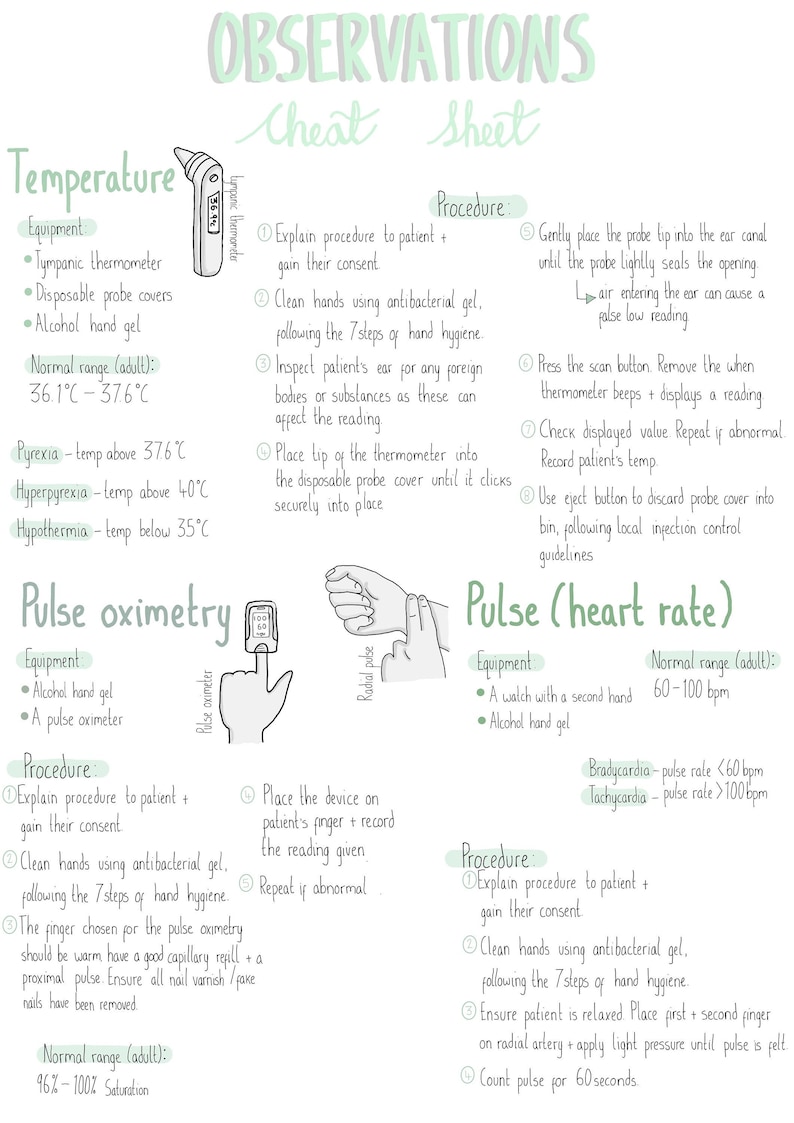 OBSERVATIONS
Cheat Sheet
Temperature
36.9°c
tympanic thermometer
Equipment:
• Tympanic thermometer
• Disposable probe covers
• Alcohol hand gel
Normal range (adult):
36.1°C – 37.6°C
Pyrexia – temp above 37.6°C
Hyperpyrexia – temp above 40°C
Hypothermia – temp below 35°C
Procedure:
① Explain procedure to patient +
gain their consent.
② Clean hands using antibacterial gel,
following the 7 steps of hand hygiene.
③ Inspect patient's ear for any foreign
bodies or substances as these can
affect the reading.
④ Place tip of the thermometer into
the disposable probe cover until it clicks
securely into place
⑤ Gently place the probe tip into the ear canal
until the probe lightlly seals the opening.
air entering the ear can cause a
false low reading.
⑥ Press the scan button. Remove the when
thermometer beeps + displays a reading
⑦ Check displayed value. Repeat if abnormal.
Record patient's temp.
⑧ Use eject button to discard probe cover into
bin, following local infection control
guidelines
Pulse oximetry
100
60
Pulse oximeter
Equipment:
• Alcohol hand gel
• A pulse oximeter
Procedure:
① Explain procedure to patient +
gain their consent.
② Clean hands using antibacterial gel,
following the 7 steps of hand hygiene.
③ The finger chosen for the pulse oximetry
should be warm, have a good capillary refill + a
proximal pulse. Ensure all nail varnish / fake
nails have been removed.
④ Place the device on
patient's finger + record
the reading given
⑤ Repeat if abnormal .
Normal range (adult):
96% – 100% Saturation
Radial pulse
Pulse (heart rate)
Equipment:
• A watch with a second hand
• Alcohol hand gel
Normal range (adult):
60 – 100 bpm
Bradycardia – pulse rate <60 bpm
Tachycardia – pulse rate >100 bpm
Procedure:
① Explain procedure to patient +
gain their consent.
② Clean hands using antibacterial gel,
following the 7 steps of hand hygiene.
③ Ensure patient is relaxed. Place first + second finger
on radial artery + apply light pressure until pulse is felt.
④ Count pulse for 60 seconds.